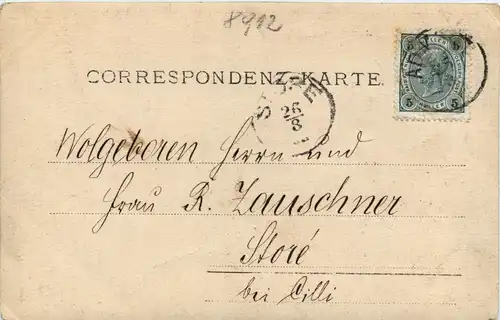 8912
CORRESPONDENZ-KARTE.
5 5
STORE
26/8
Wolgeboren Herrn und
Frau R. Zauschner
Storé
bei Cilli